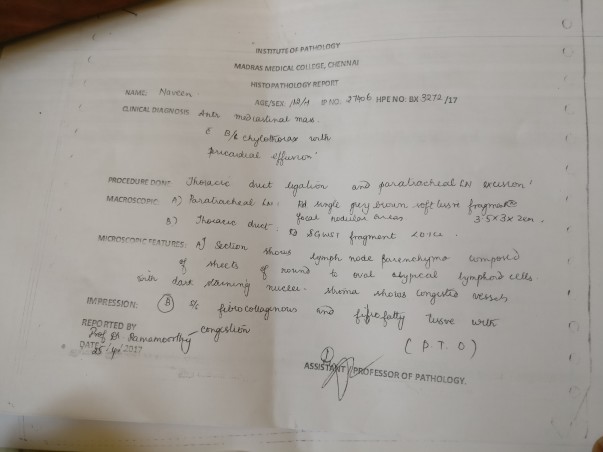 INSTITUTE OF PATHOLOGY
MADRAS MEDICAL COLLEGE, CHENNAI
HISTOPATHOLOGY REPORT
NAME: Naveen AGE/SEX: IP NO. 27406 HPE NO: BX 3272 /17
CLINICAL DIAGNOSIS: Antr mediastinal mass.
c̄ B/L chylothorax with
pericardial effusion
PROCEDURE DONE: Thoracic duct ligation and paratracheal LN excision
MACROSCOPIC: A) Paratracheal LN: single grey brown soft tissue fragment
focal nodular areas 3.5x3x2cm.
B) Thoracic duct: SGWST fragment
MICROSCOPIC FEATURES: A) Section shows lymph node parenchyma composed
of sheets of round to oval atypical lymphoid cells
with dark staining nuclei. Stroma shows congested vessels
IMPRESSION: (B) S/s fibrocollagenous and fibrofatty tissue with
congestion
(P.T.O)
REPORTED BY
Prof Dr Ramamoorthy
DATE: 25 2017
ASSISTANT PROFESSOR OF PATHOLOGY.